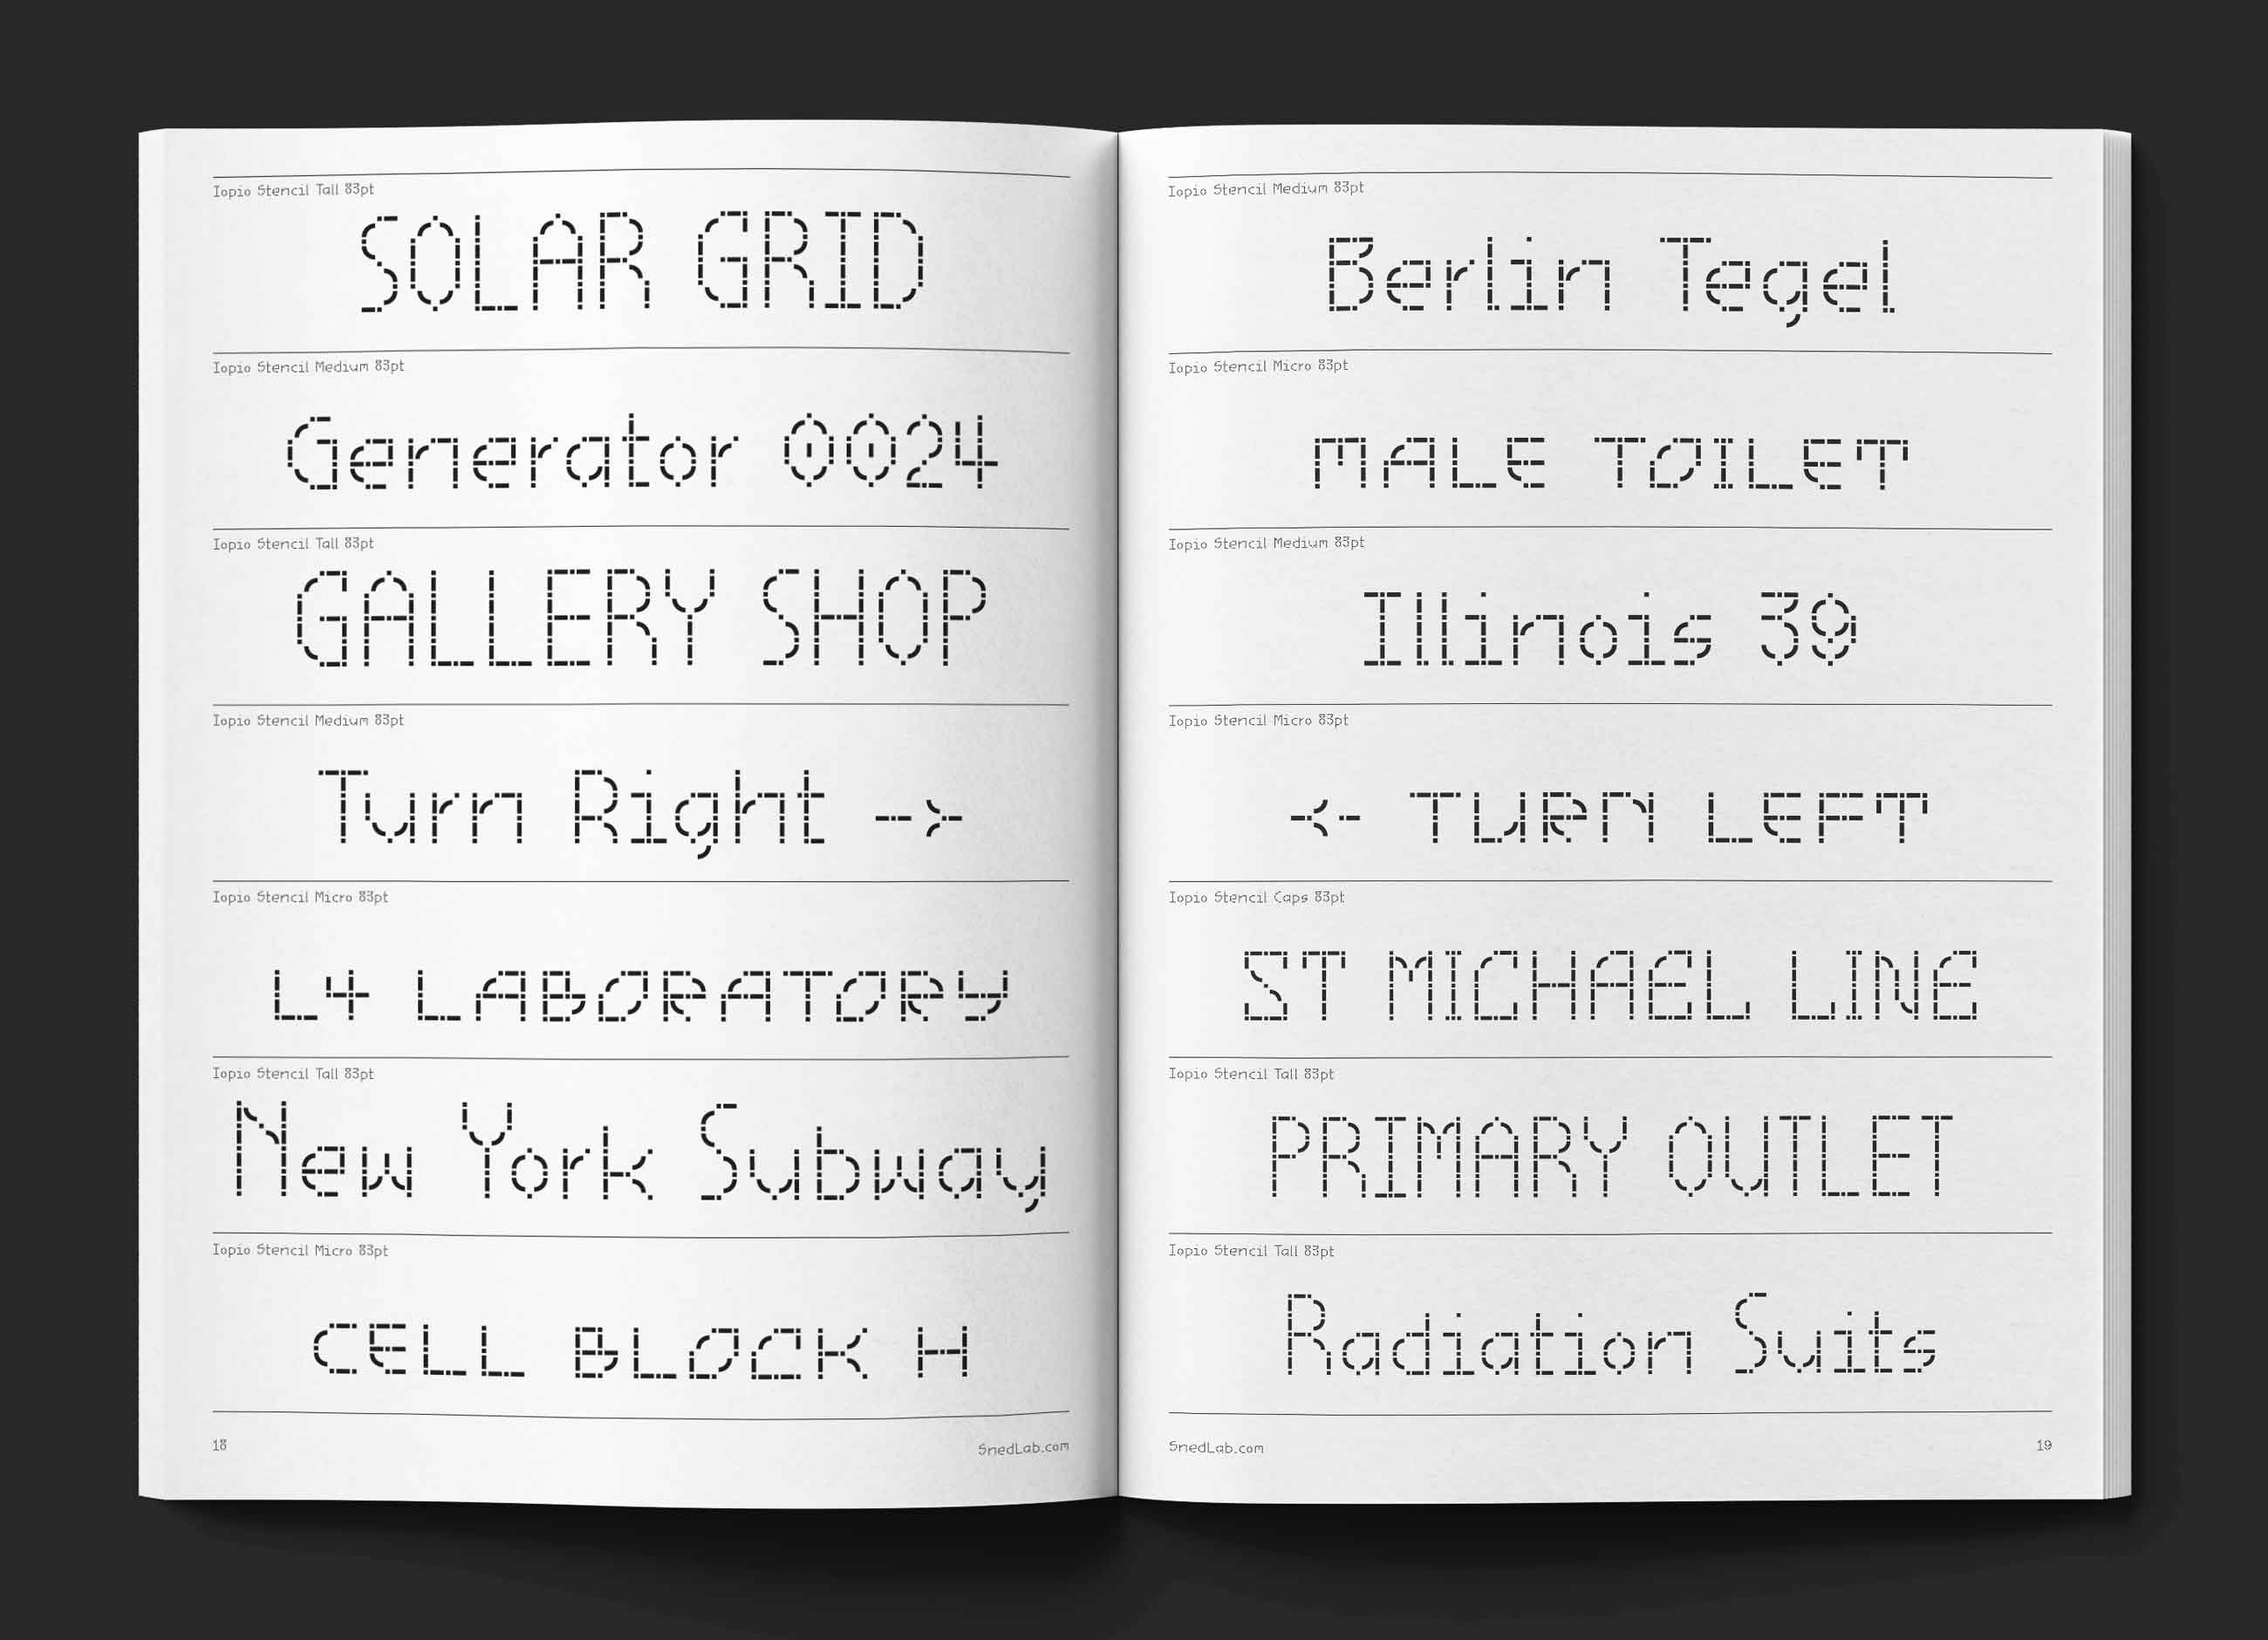 Iopio Stencil Tall 83pt
SOLAR GRID
Iopio Stencil Medium 83pt
Generator 0024
Iopio Stencil Tall 83pt
GALLERY SHOP
Iopio Stencil Medium 83pt
Turn Right -->
Iopio Stencil Micro 83pt
L4 LABORATORY
Iopio Stencil Tall 83pt
New York Subway
Iopio Stencil Micro 83pt
CELL BLOCK H
18 SnedLab.com
Iopio Stencil Medium 83pt
Berlin Tegel
Iopio Stencil Micro 83pt
MALE TOILET
Iopio Stencil Medium 83pt
Illinois 39
Iopio Stencil Micro 83pt
<- TURN LEFT
Iopio Stencil Caps 83pt
ST MICHAEL LINE
Iopio Stencil Tall 83pt
PRIMARY OUTLET
Iopio Stencil Tall 83pt
Radiation Suits
SnedLab.com 19